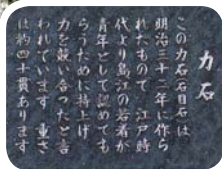 力石
この力石石目石は
明治三十二年に作ら
れたもので 江戸時
代より島江の若者が
青年として認めても
らうために持上げ
力を競い合ったと言
われています 重さ
は約四十貫あります